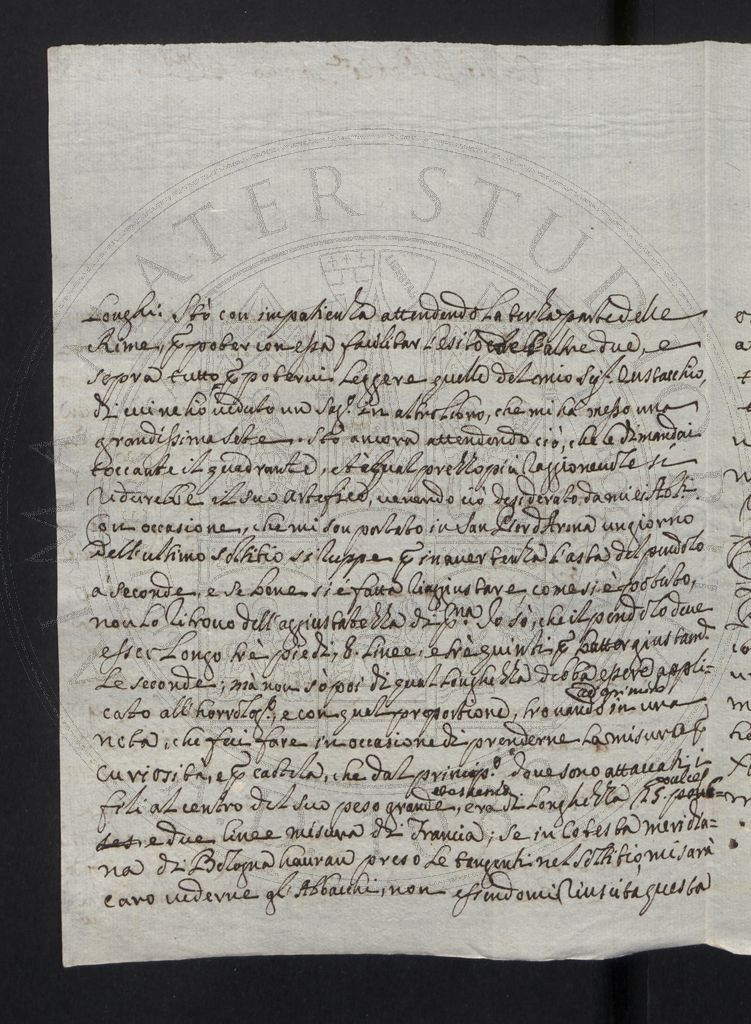 Longhi: Stò con impatienza attendendo la terza parte delle
Rime, p poter con essa facilitar l'esito dell'altre due, e
sopra tutto p potervi leggere quelle del mio Sig.r Eustacchio,
di cui ne hò veduto un in altro libro, che mi hà messo una
grandissima sete. Stò ancora attendendo ciò, che le dimandai
toccante il quadrante, et à qual prezzo più raggionevole si
ridurebbe il suo artefice, venendo ciò desiderato da
Con occasione, che mi son portato in San Pier d'Arena un giorno
dell'ultimo solstitio si ruppe p inavertenza l'asta del pendolo
à seconde, e se bene si è fatta riaggiustare come si è potuto,
non lo ritrovo dell'aggiustatezza di p.ma Io sò, che il pendolo deve
esser longo trè piedi, 8. linee, e trè quinti p batter giustam.te
le seconde; mà non sò poi di qual longhezza debba essere appli-
cato all'horrolog.o, e con qual proportione, trovando in una
ad gr.
nota, che feci fare in occasione di prenderne la misura p
curiosità, e p cautela, che dal princip.o dove sono attaccati i
fili al centro del suo peso grande, era di longhezza 15.
pouces
e due linee misura di Francia; se in cotesta meridia=
na di Bologna hauran preso le tangenti nel solstitio, mi sarà
caro vederne gl'Abbacchi, non essendomi riuscita questa